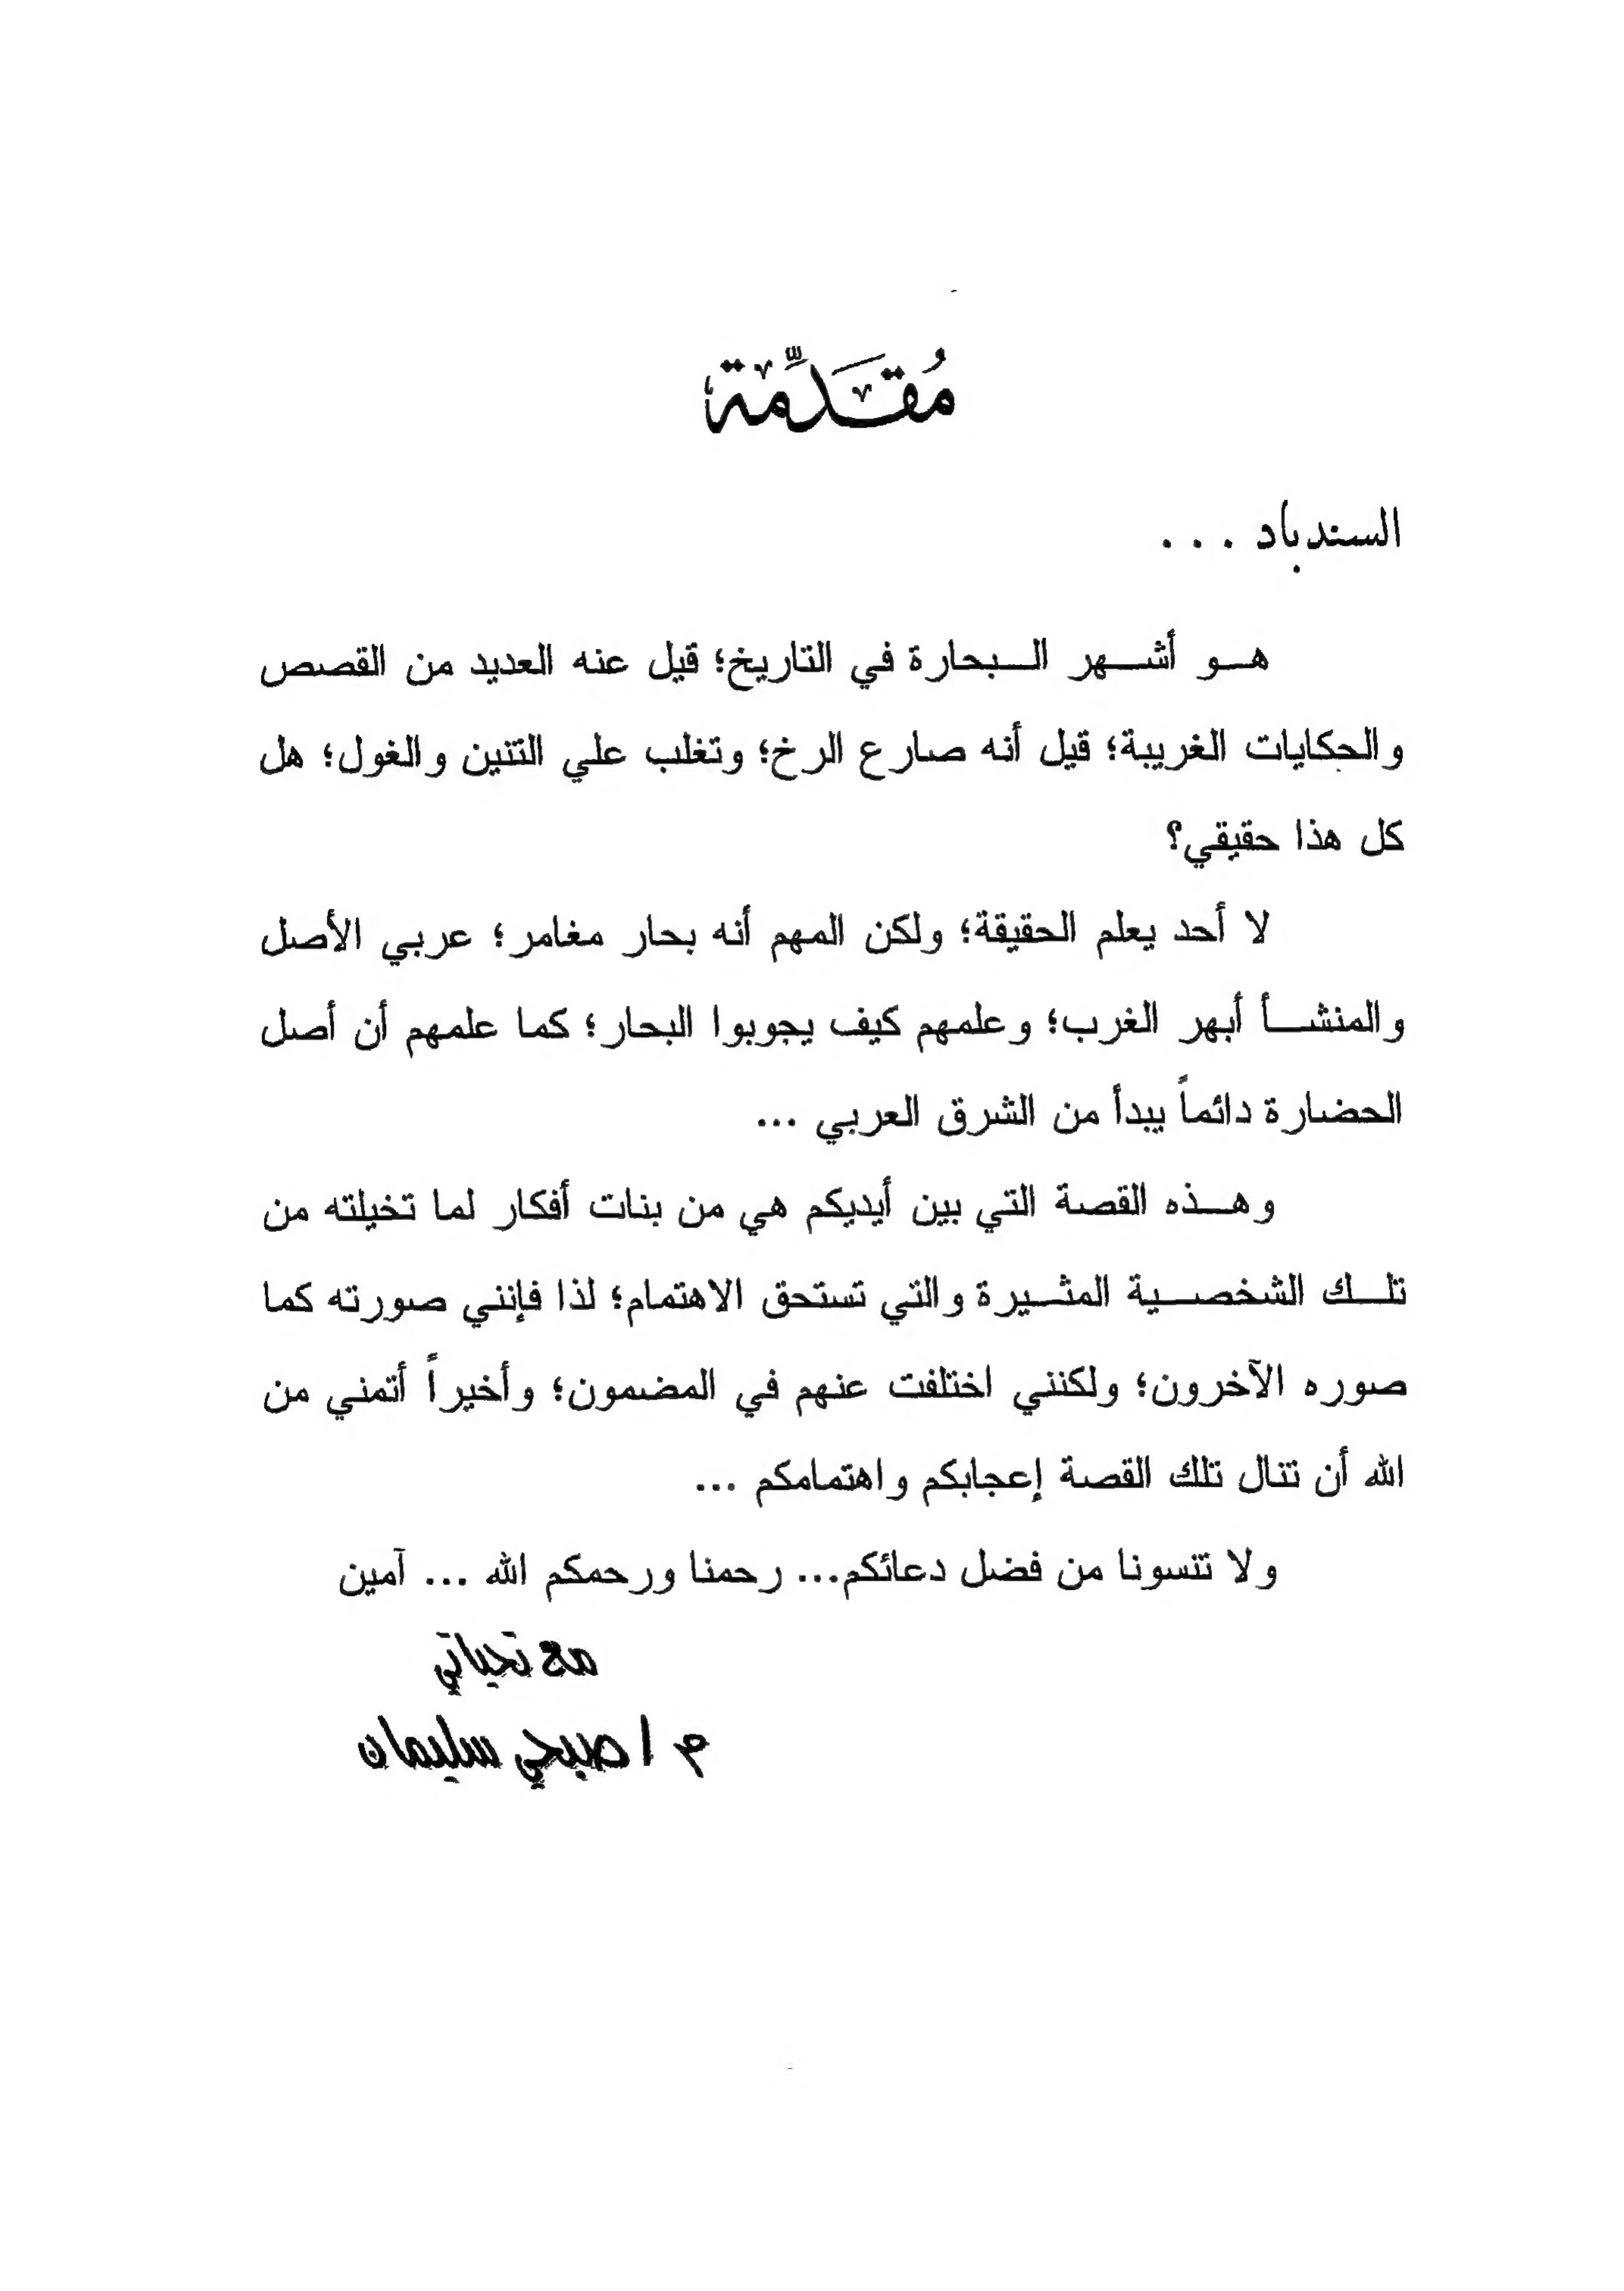 مُقَدِّمة
السندباد ...
هو أشهر البحارة في التاريخ؛ قيل عنه العديد من القصص
والحكايات الغريبة؛ قيل أنه صارع الرخ؛ وتغلب علي التنين والغول؛ هل
كل هذا حقيقي؟
لا أحد يعلم الحقيقة؛ ولكن المهم أنه بحار مغامر؛ عربي الأصل
والمنشأ أبهر الغرب؛ وعلمهم كيف يجوبوا البحار؛ كما علمهم أن أصل
الحضارة دائماً يبدأ من الشرق العربي ...
وهذه القصة التي بين أيديكم هي من بنات أفكار لما تخيلته من
تلك الشخصية المثيرة والتي تستحق الاهتمام؛ لذا فإنني صورته كما
صوره الآخرون؛ ولكنني اختلفت عنهم في المضمون؛ وأخيراً أتمني من
الله أن تنال تلك القصة إعجابكم واهتمامكم ...
ولا تنسونا من فضل دعائكم... رحمنا ورحمكم الله ... آمين
مع تحياتي
م / صبحي سليمان